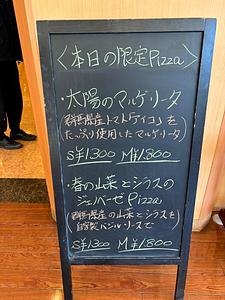 〈本日の限定Pizza〉
・太陽のマルゲリータ
(群馬県産トマト
を
たっぷり使用したマルゲリータ)
S¥1300 M¥1.800
・春の山菜とシラスの
ジェノベーゼPizza
(群馬県産の山菜とシラスを
自家製バジルソースで
S¥1300 M¥1.800